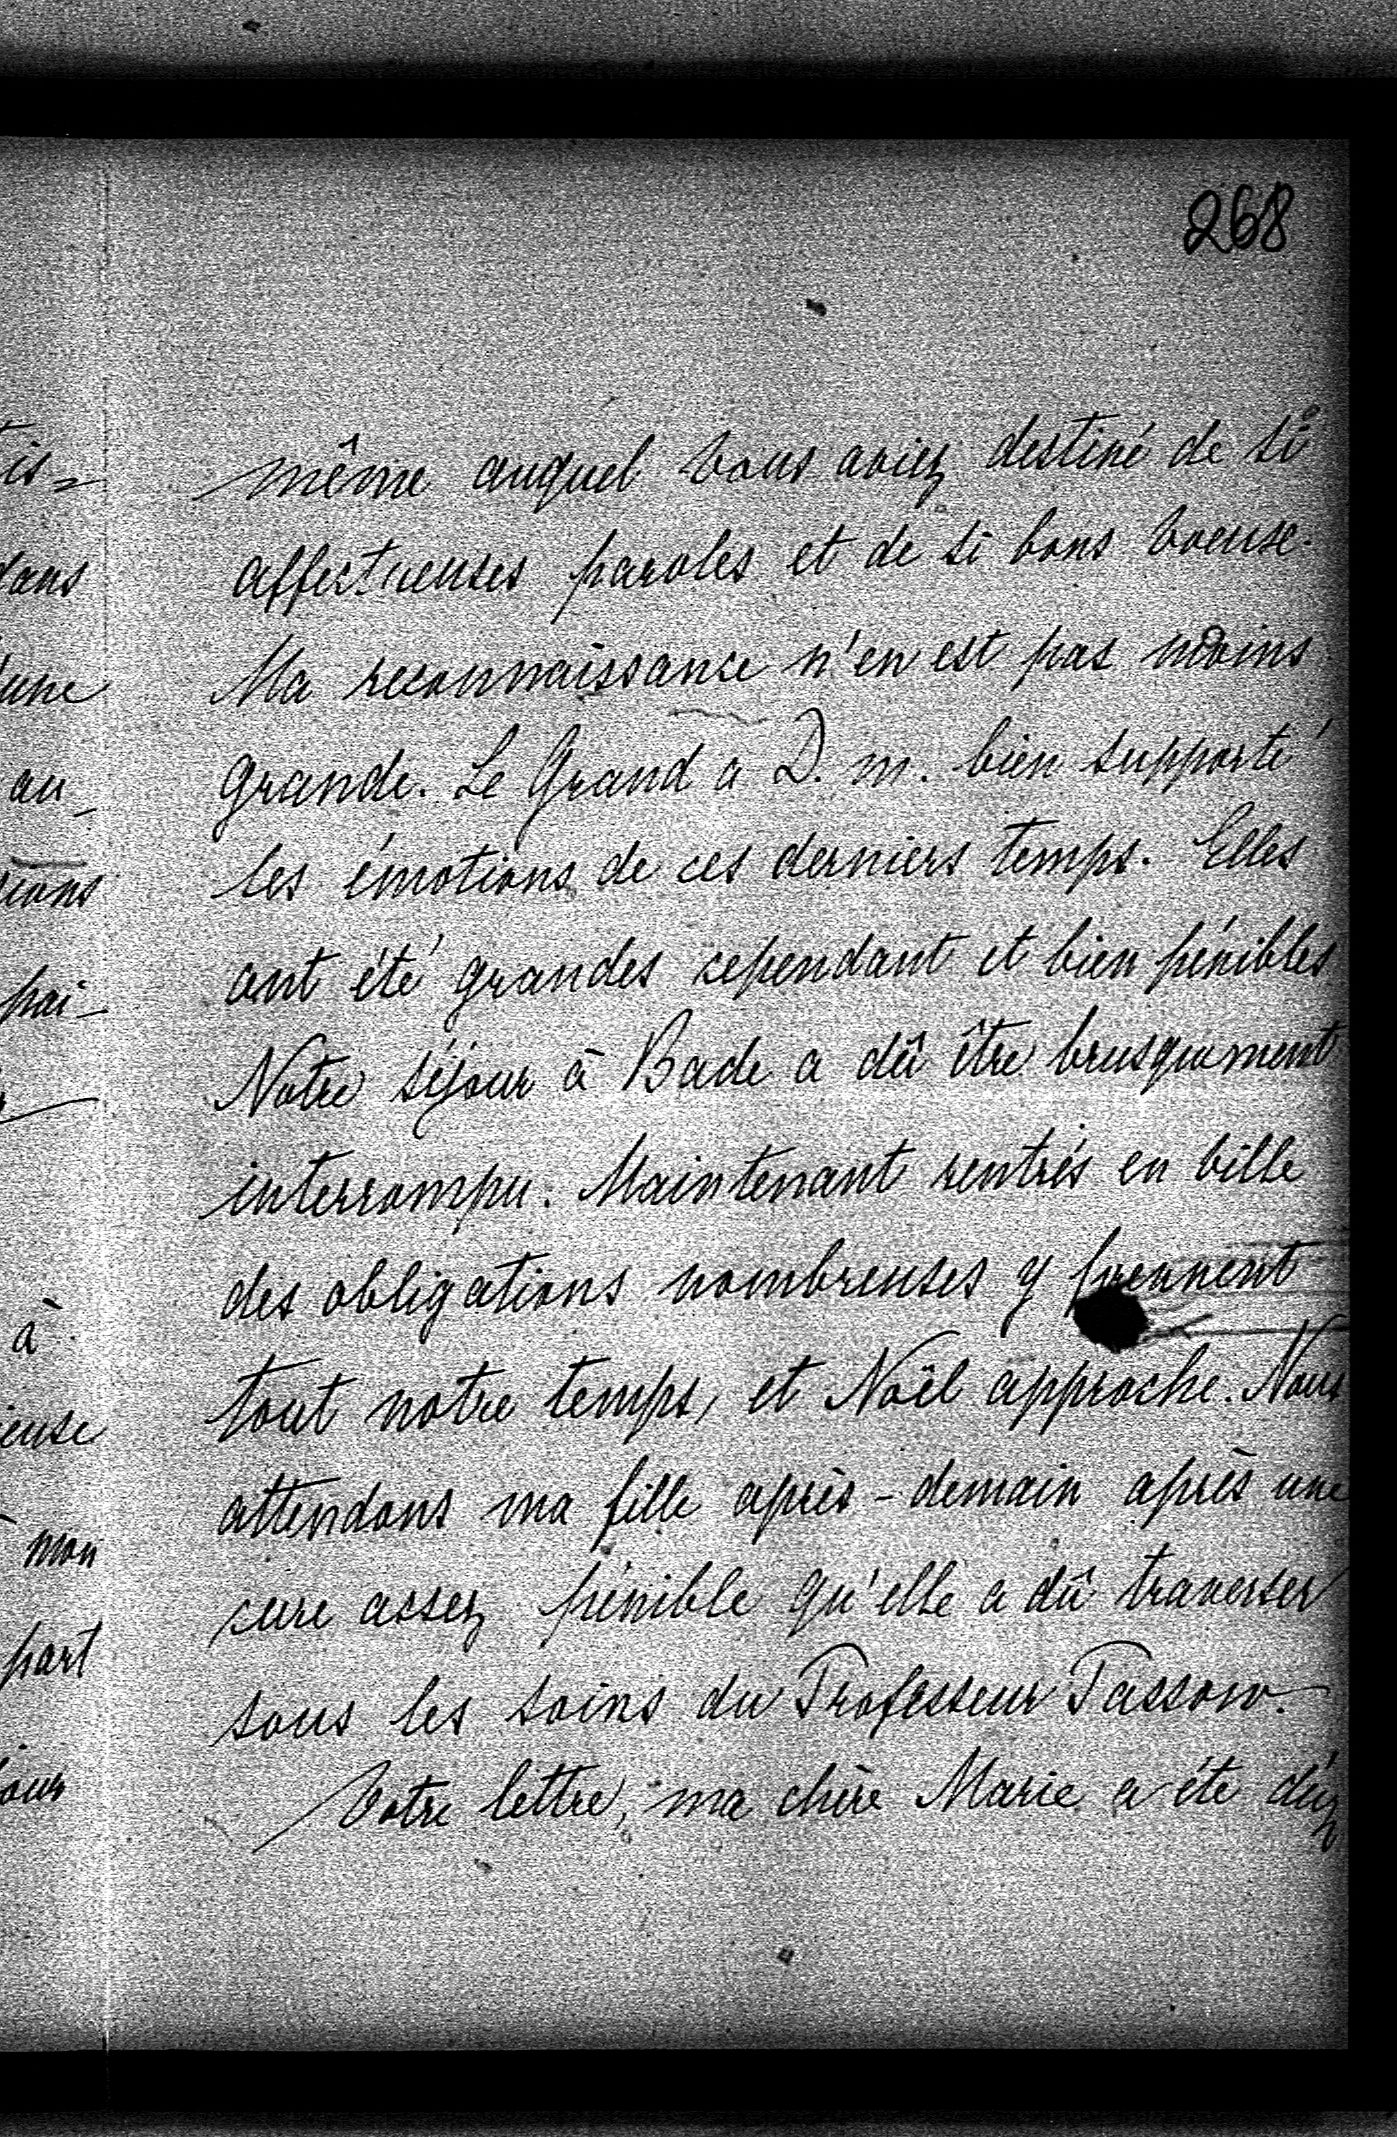 268
même auquel vous aviez destiné de si
affectueuses paroles et de si bons voeux.
Ma reconnaissance n'en est pas moins
grande. Le Grand a D. m. bien supporté
les émotions de ces derniers temps. Elles
ont été grandes cependant et bien pénibles
Notre séjour à Bade a dû être brusquement
interrompu. Maintenant rentrés en ville
des obligations nombreuses y prennent
tout notre temps, et Noël approche. Nous
attendons ma fille après-demain après une
cure assez pénible qu'elle a dû traverser
sous les soins du Professeur Passow.
Votre lettre, ma chère Marie a été
tis=
dans
une
au_
pai_
à
ieuse
mon
part